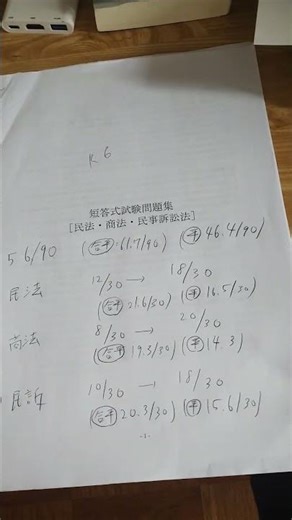 R6
短答式試験問題集
[民法・商法・民事訴訟法]
56/90 (合平 61.7/90) (平 46.4/90)
民法 12/30 → 18/30
(合平 21.6/30) (平 16.5/30)
商法 8/30 → 20/30
(合平 19.3/30) (平 14.3)
民訴 10/30 → 18/30
(合平 20.3/30) (平 15.6/30)
-1-